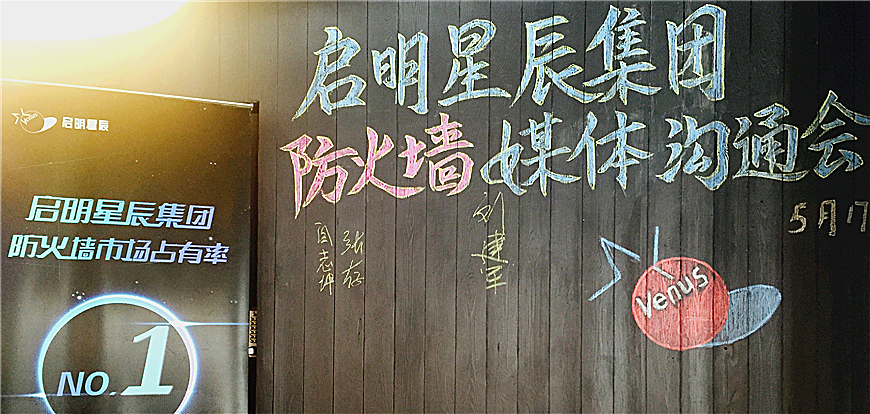 启明星辰集团
防火墙媒体沟通会
5月17
刘建军
张存
Venus
Venus
启明星辰
启明星辰集团
防火墙市场占有率
NO.1